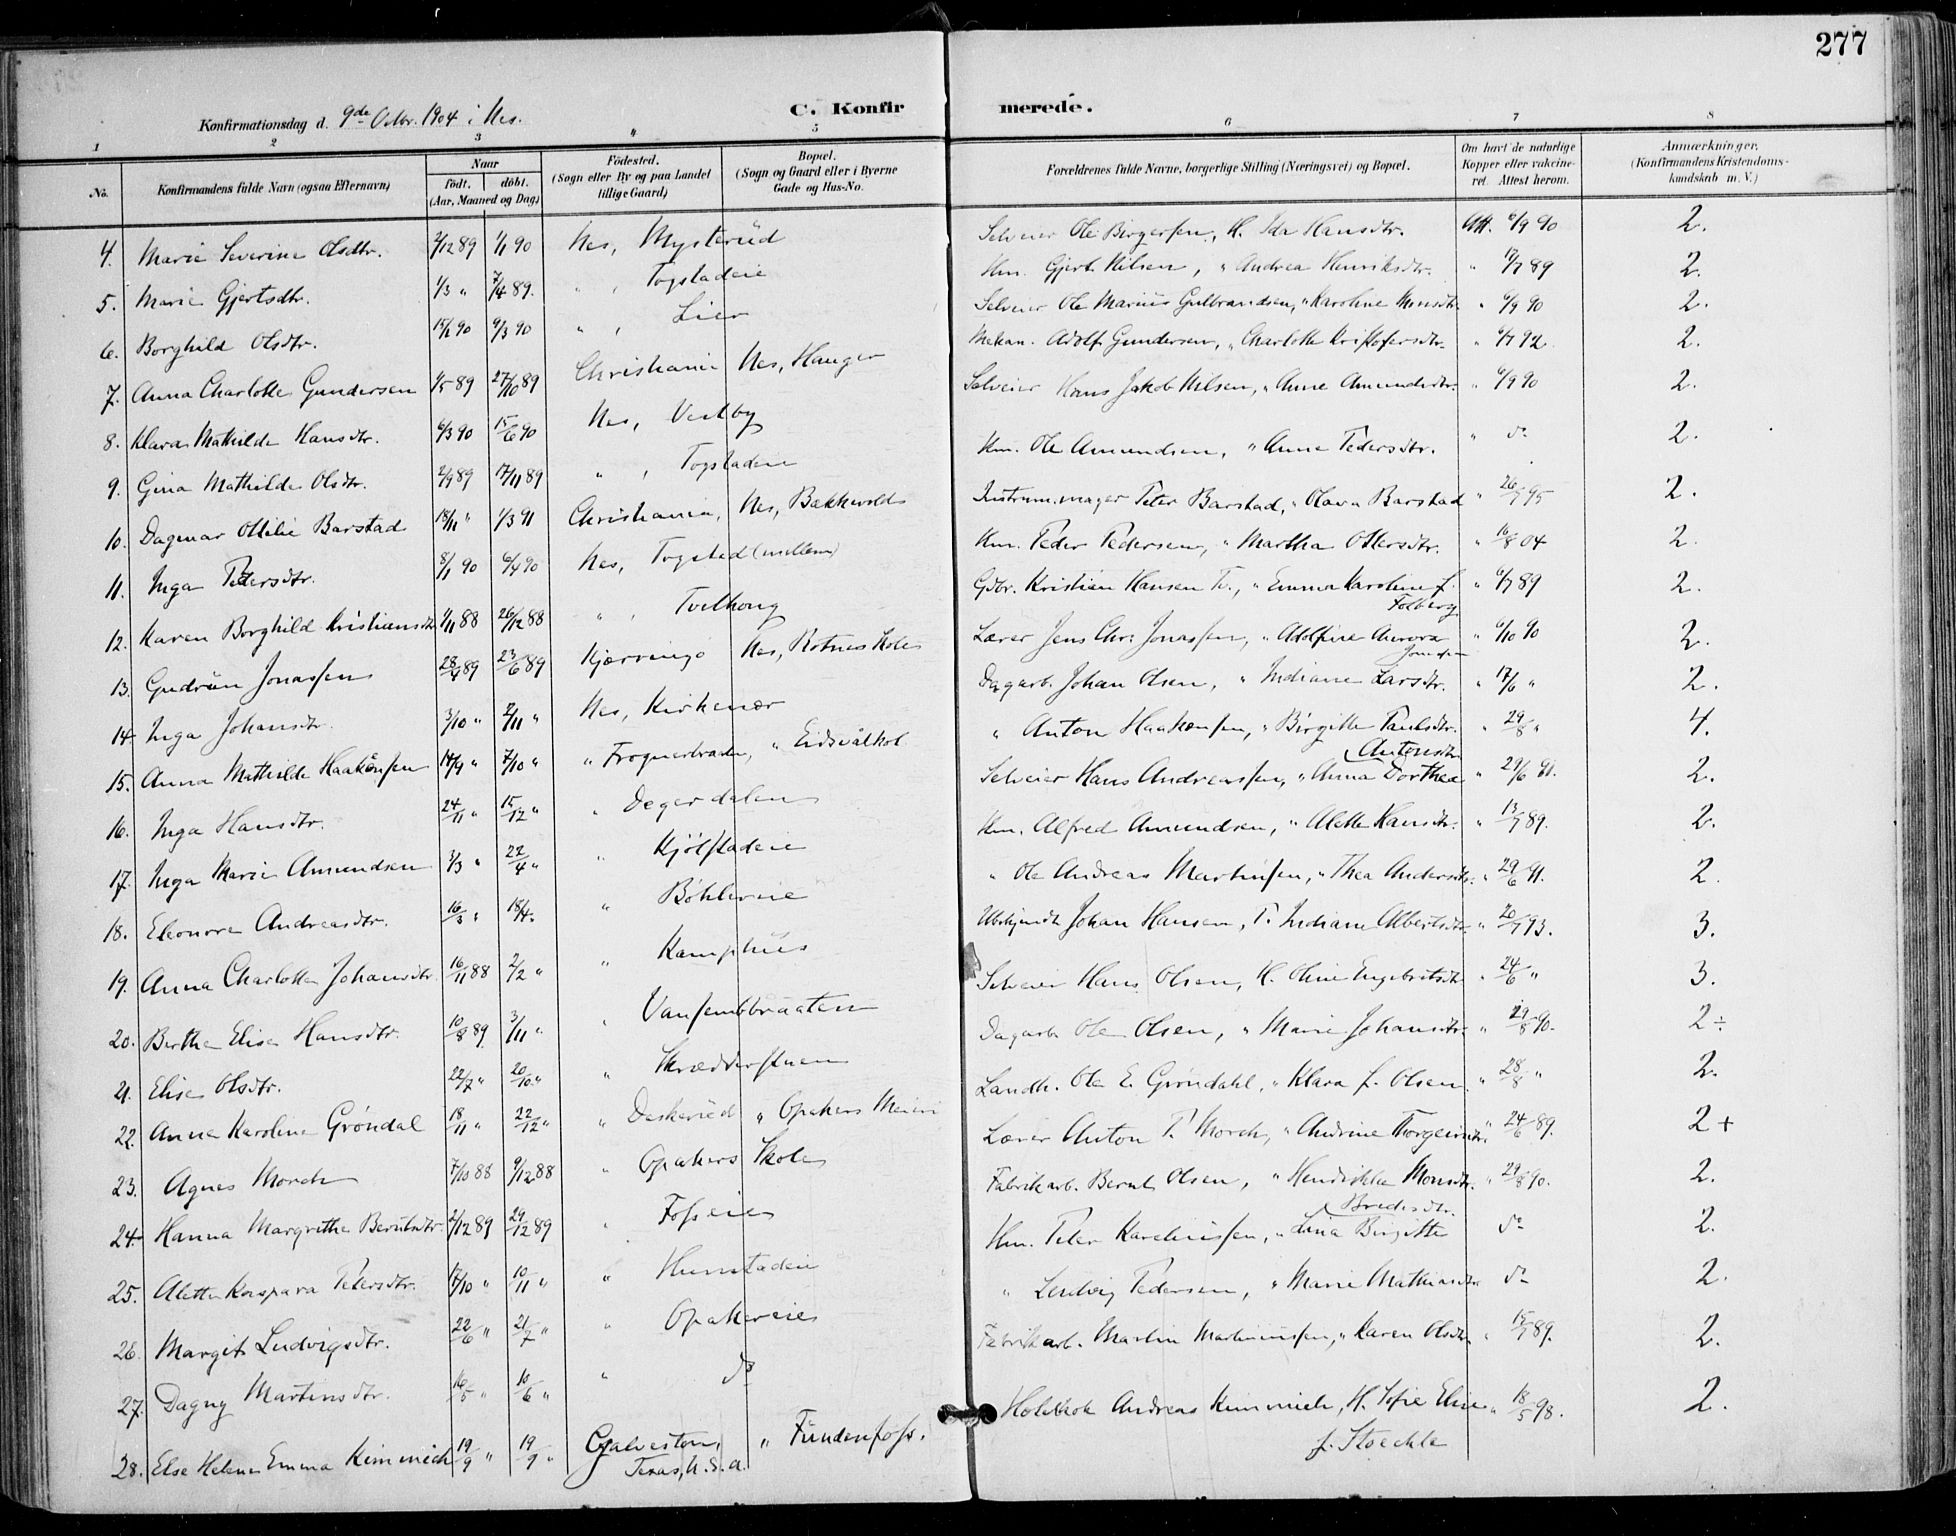 277
C. Konfirmerede.
Konfirmationsdag d. 9de Octbr. 1904 i Nes.
1 2 3 4 5 6 7 8
No. Konfirmandens fulde Navn (ogsaa Efternavn) Naar født. døbt. (Aar, Maaned og Dag) Födested. (Sogn eller By og paa Landet tillige Gaard) Bopæl. (Sogn og Gaard eller i Byerne Gade og Hus-No. Forældrenes fulde Navne, borgerlige Stilling (Næringsvei) og Bopæl. Om havt de naturlige Kopper eller vakcineret. Attest herom. Anmærkninger. (Konfirmandens Kristendomskundskab m. V.)
4. Marie Severine Olsdtr. 2/12 89 1/1 90 Nes, Mysterud Selveier Ole Birgersen, H. Ida Hansdtr. Att. 6/9 90 2.
5. Marie Gjertsdtr. 1/3 " 7/4 89. " , Togstadeie Hm. Gjert Nilsen, " Andrea Henriksdtr. " 17/7 89 2.
6. Borghild Olsdtr. 15/1 90 9/3 90 " , Lier Selveier Ole Marius Gulbrandsen, " Karoline Monsdtr. " 6/9 90 2.
7. Anna Charlotte Gundersen 1/5 89 27/10 89 Christiania Nes, Hauger Mekan. Adolf Gundersen, " Charlotte Kristofersdtr. " 6/7 92. 2.
8. Klara Mathilde Hansdtr. 6/3 90 15/6 90 Nes, Vestby Selveier Hans Jakob Nilsen, " Anne Amundsdtr. " 6/9 90 2.
9. Gina Mathilde Olsdtr. 2/9 89 17/11 89 " , Togstadeie Hm. Ole Amundsen, " Anne Pedersdtr. " do 2.
10. Dagmar Ottilie Barstad 18/11 " 1/3 91 Christiania, Nes, Bakkevolds Instrummager Peter Barstad, " Olava Barstad " 26/7 95 2.
11. Inga Pedersdtr. 8/1 90 6/4 90 Nes, Togstad (mellem) Hm. Peder Pedersen, " Martha Ottersdtr. " 16/8 04 2.
12. Karen Borghild Kristiansdtr. 1/11 88 26/12 88 " , Tveithoug Gdbr. Kristian Hansen Tv., " Emma Karoline f. Folberg " 6/7 89 2.
13. Gudrun Jonassen 28/4 89 23/6 89 Kjærringø Nes, Rotnes Skole Lærer Jens Chr. Jonassen, " Adolfine Aurora Jonassen " 6/10 90 2.
14. Inga Johansdtr. 3/10 " 2/11 " Nes, Kirkenær Dagarb. Johan Olsen, " Indiane Larsdtr. " 17/6 " 2.
15. Anna Mathilde Haakonsen 14/9 " 7/10 " " Frognerbraaten, " Eidsvålkol " Anton Haakonsen, " Birgitte Paulsdtr. " 29/8 " 4.
16. Inga Hansdtr. 24/11 " 15/12 " " Degerdalen Selveier Hans Andreassen, " Anna Dorthea Antonsdtr. " 29/6 91. 2.
17. Inga Marie Amundsen 3/3 " 22/4 " " Kjölstadeie Hm. Alfred Amundsen, " Alette Hansdtr. " 13/7 89. 2.
18. Eleonora Andreasdtr. 16/3 " 18/4. " Böhlereie " Ole Andreas Martinsen, " Thea Andersdtr. " 29/6 91. 2.
19. Anna Charlotte Johansdtr. 16/11 88 2/2 " " Kamphus Ubekjendt Johan Hansen, P. Indiane Albertsdtr. " 20/7 93. 3.
20. Berthe Elise Hansdtr. 10/8 89 3/11 " " Vansembbraaten Selveier Hans Olsen, H. Oline Engebretsdtr. " 24/6 " 3.
21. Elise Olsdtr. 22/7 " 20/10 " " Skrædderstuen Dagarb Ole Olsen, " Marie Johansdtr. " 29/8 90. 2÷
22. Anna Karoline Gröndal 18/11 " 22/12 " " Daskerud " Opakers Meieri Landh. Ole E. Gröndahl, " Klara f. Olsen. " 28/8 " 2.
23. Agnes Morch 7/10 88 9/12 88 " Opakers Skole Lærer Anton P. Morch, " Andrine Thorgeirsdtr. " 24/6 89. 2+
24. Hanna Margrethe Berntsdtr. 2/12 89 29/12 89 " Fosseie Fabrikarb. Bernt Olsen, " Hendrikke Monsdtr. " 29/8 90. 2.
25. Alette Kaspara Petersdtr. 17/10 " 10/11 " " Hunstadeie Hm. Peter Kareliussen, " Lina Birgitte Bredesdtr. do 2.
26. Margit Ludvigsdtr. 22/6 " 21/7 " " Opakereie " Ludvig Pedersen, " Marie Mathiasdtr. do 2.
27. Dagny Martinsdtr. 16/5 " 10/6 " " do Fabrikarb. Martin Martiniussen, " Karen Olsdtr. " 15/7 89. 2.
28. Else Helene Emma Kimmich 19/9 " 19/9 " Galveston, Texas, U.S.A. " Fundenfoss. Andreas Kimmich, H. Sofie Elise f. Stoeckle " 18/5 98. 2.